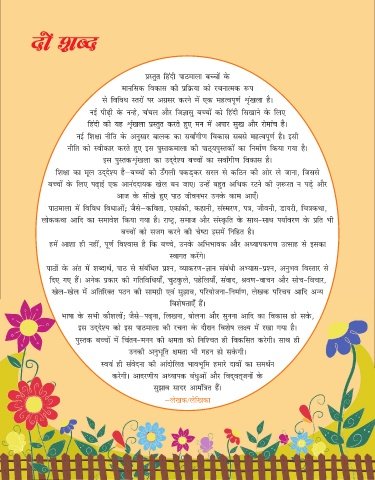 दो शब्द
प्रस्तुत हिंदी पाठमाला बच्चों के
मानसिक विकास की प्रक्रिया को रचनात्मक रूप
से विविध स्तरों पर अग्रसर करने में एक महत्वपूर्ण शृंखला है।
नई पीढ़ी के नन्हे, चंचल और जिज्ञासु बच्चों को हिंदी सिखाने के लिए
हिंदी की यह शृंखला प्रस्तुत करते हुए मन में अपार सुख और रोमांच है।
नई शिक्षा नीति के अनुसार बालक का सर्वांगीण विकास सबसे महत्वपूर्ण है। इसी
नीति को स्वीकार करते हुए इस पुस्तकमाला की पाठ्यपुस्तकों का निर्माण किया गया है।
इस पुस्तकशृंखला का उद्देश्य बच्चों का सर्वांगीण विकास है।
शिक्षा का मूल उद्देश्य है–बच्चों को उँगली पकड़कर सरल से कठिन की ओर ले जाना, जिससे
बच्चों के लिए पढ़ाई एक आनंददायक खेल बन जाए। उन्हें बहुत अधिक रटने की ज़रूरत न पड़े और
आज के सीखे हुए पाठ जीवनभर उनके काम आएँ।
पाठमाला में विविध विधाओं; जैसे–कविता, एकांकी, कहानी, संस्मरण, पत्र, जीवनी, डायरी, चित्रकथा,
लोककथा आदि का समावेश किया गया है। राष्ट्र, समाज और संस्कृति के साथ-साथ पर्यावरण के प्रति भी
बच्चों को सजग करने की चेष्टा इसमें निहित है।
हमें आशा ही नहीं, पूर्ण विश्वास है कि बच्चे, उनके अभिभावक और अध्यापकगण उत्साह से इसका
स्वागत करेंगे।
पाठों के अंत में शब्दार्थ, पाठ से संबंधित प्रश्न, व्याकरण-ज्ञान संबंधी अभ्यास-प्रश्न, अनुभव विस्तार से
दिए गए हैं। अनेक प्रकार की गतिविधियाँ, चुटकुले, पहेलियाँ, संवाद, श्रवण-वाचन और सोच-विचार,
खेल-खेल में अतिरिक्त पठन की सामग्री एवं सुझाव, परियोजना-निर्माण, लेखक परिचय आदि अन्य
विशेषताएँ हैं।
भाषा के सभी कौशलों; जैसे–पढ़ना, लिखना, बोलना और सुनना आदि का विकास हो सके,
इस उद्देश्य को इस पाठमाला की रचना के दौरान विशेष लक्ष्य में रखा गया है।
पुस्तक बच्चों में चिंतन-मनन की क्षमता को निश्चित ही विकसित करेगी। साथ ही
उनकी अनुभूति क्षमता भी गहन हो सकेगी।
स्वयं ही संवेदना की आंदोलित भावभूमि हमारे दावों का समर्थन
करेगी। आदरणीय अध्यापक बंधुओं और विद्वत्जनों के
सुझाव सादर आमंत्रित हैं।
–लेखक/लेखिका